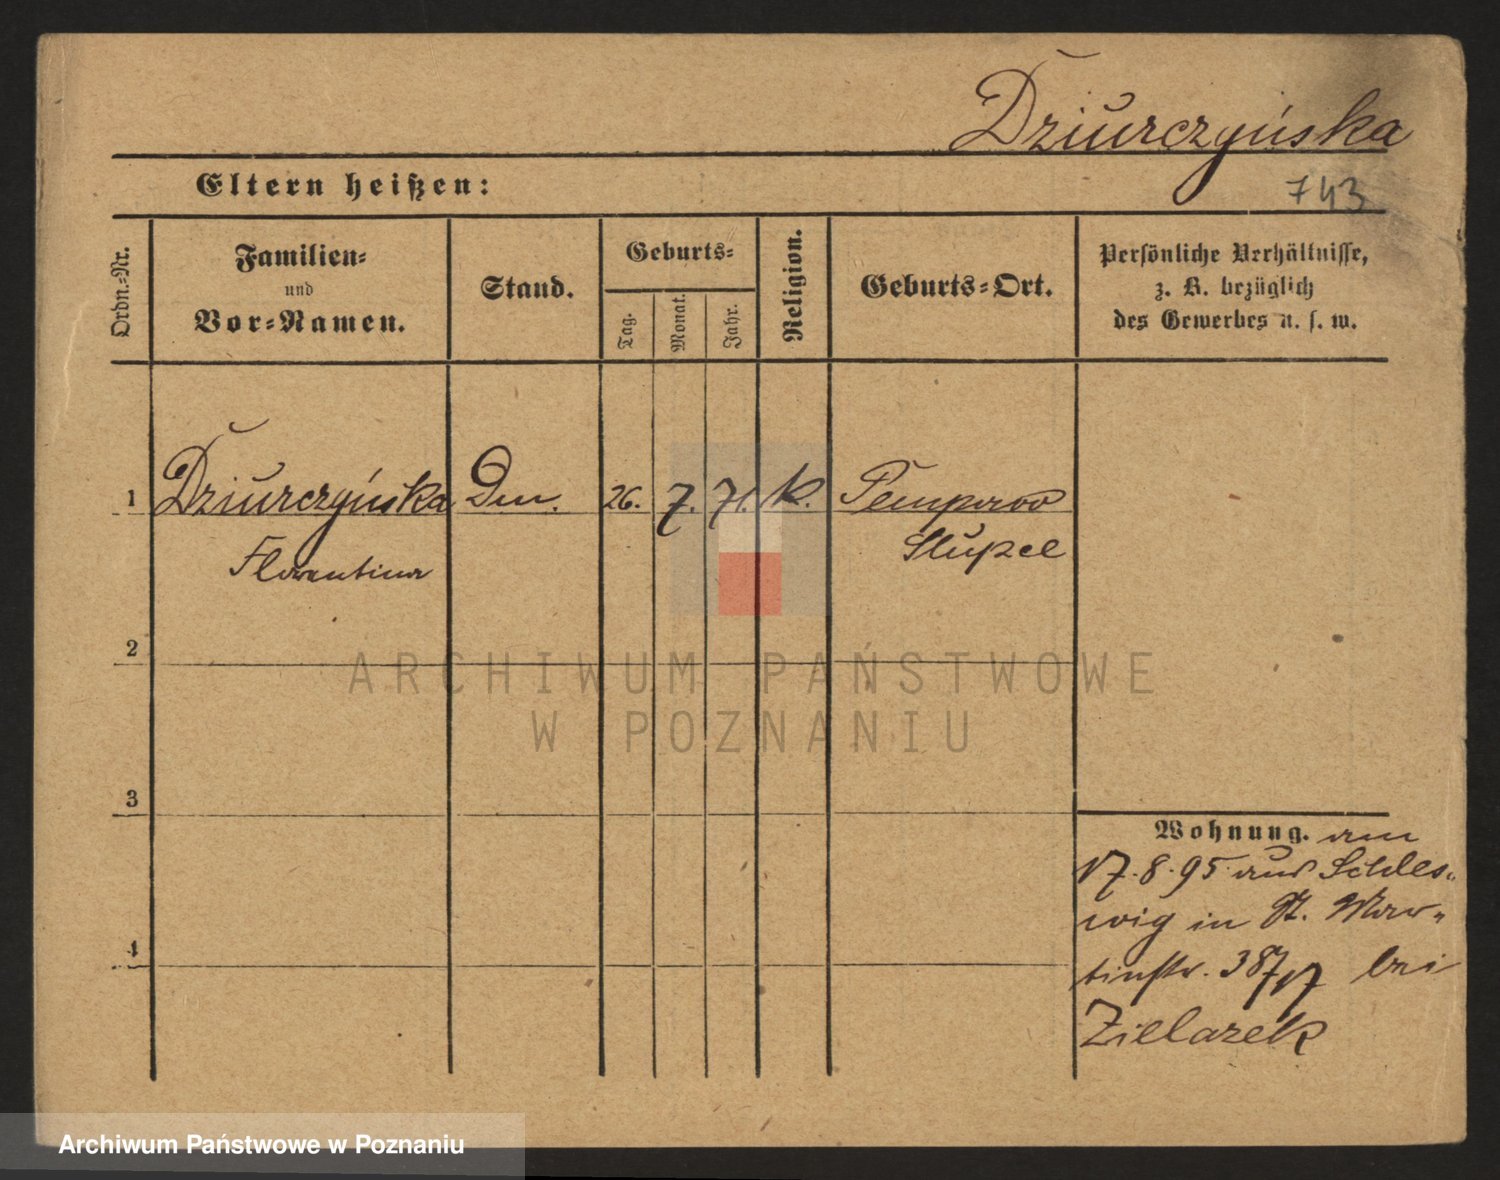 Dziurczyńska
743
Eltern heißen:
Ordn.-Nr.
Familien-
und
Vor-Namen.
Stand.
Geburts-
Tag.
Monat.
Jahr.
Religion.
Geburts-Ort.
Persönliche Verhältnisse,
z. B. bezüglich
des Gewerbes u. s. w.
1 Dziurczyńska Den. 26. 7. 71. k. Pempowo
Florentina Slupzel
2
3
4
Wohnung. am
17.8.95 aus Schles-
wig in St. Mar-
tinstr. bei
Zielazek
ARCHIWUM PAŃSTWOWE
W POZNANIU
Archiwum Państwowe w Poznaniu